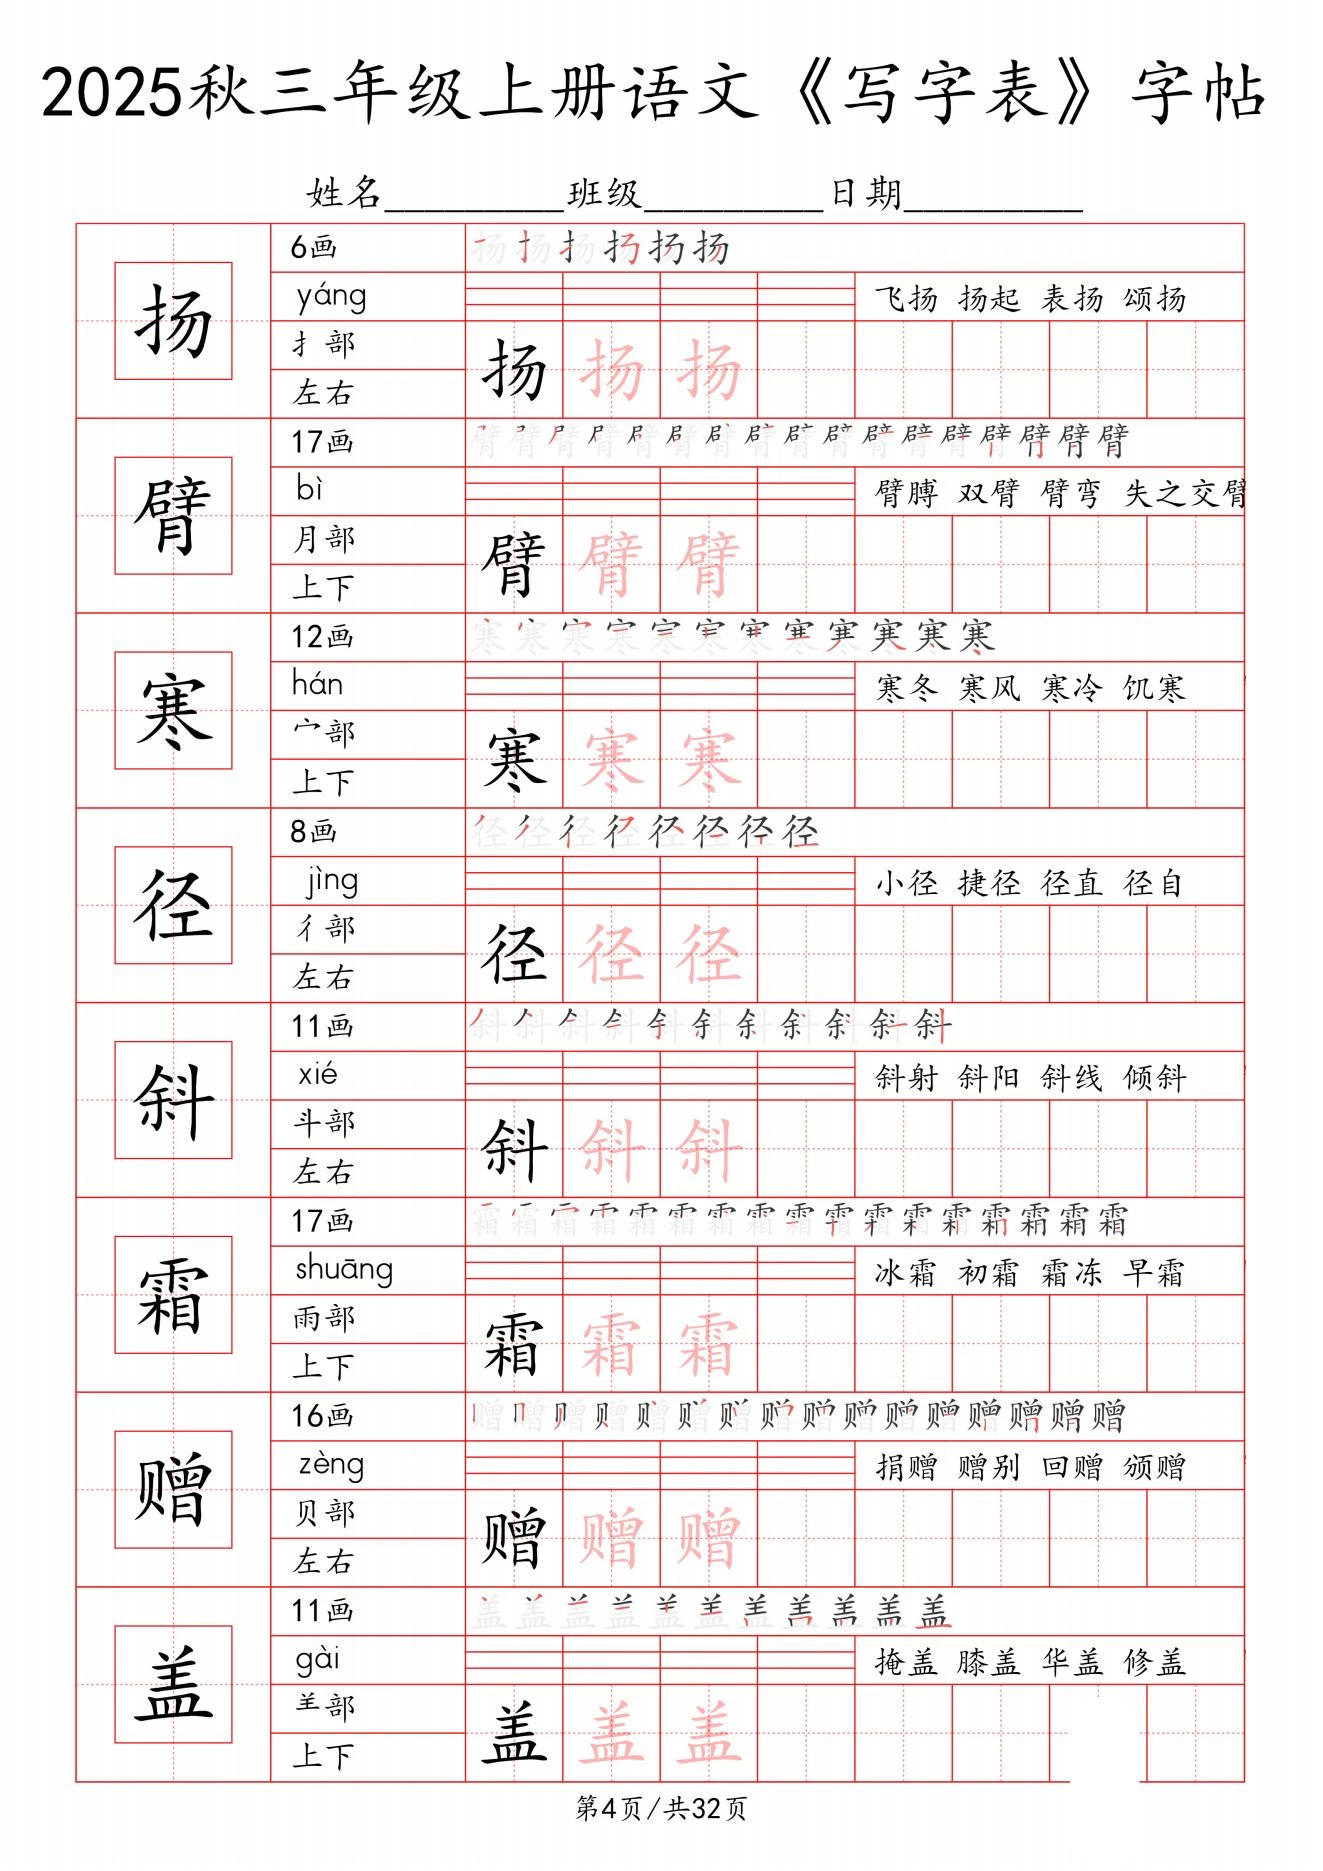 2025秋三年级上册语文《写字表》字帖
姓名_________班级_________日期_________
扬
6画
扬扬扬扬扬扬
yáng
飞扬 扬起 表扬 颂扬
扌部
扬 扬 扬
左右
臂
17画
臂臂臂臂臂臂臂臂臂臂臂臂臂臂臂臂臂
bì
臂膊 双臂 臂弯 失之交臂
月部
臂 臂 臂
上下
寒
12画
寒寒寒寒寒寒寒寒寒寒寒寒
hán
寒冬 寒风 寒冷 饥寒
宀部
寒 寒 寒
上下
径
8画
径径径径径径径径
jìng
小径 捷径 径直 径自
彳部
径 径 径
左右
斜
11画
斜斜斜斜斜斜斜斜斜斜斜
xié
斜射 斜阳 斜线 倾斜
斗部
斜 斜 斜
左右
霜
17画
霜霜霜霜霜霜霜霜霜霜霜霜霜霜霜霜霜
shuāng
冰霜 初霜 霜冻 早霜
雨部
霜 霜 霜
上下
赠
16画
赠赠赠赠赠赠赠赠赠赠赠赠赠赠赠赠
zèng
捐赠 赠别 回赠 颁赠
贝部
赠 赠 赠
左右
盖
11画
盖盖盖盖盖盖盖盖盖盖盖
gài
掩盖 膝盖 华盖 修盖
⺷部
盖 盖 盖
上下
第4页/共32页